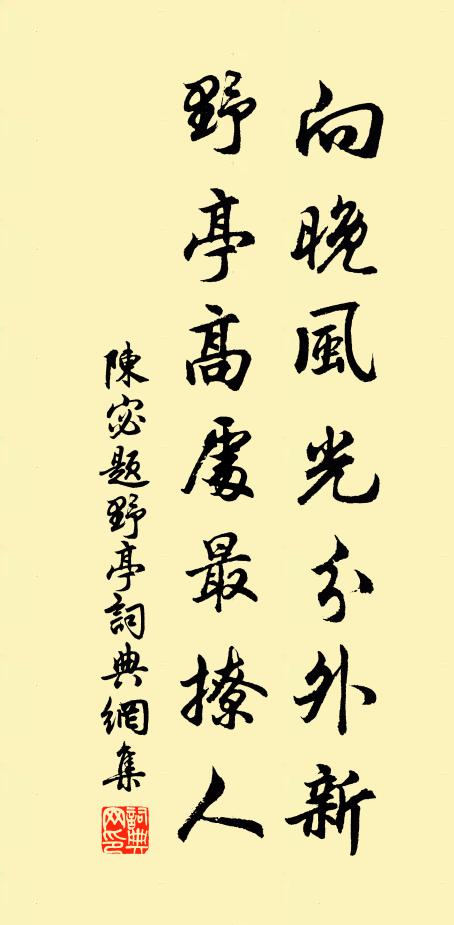 向晚風光分外新
野亭高處最撩人
陳宓題野亭詞典網集
詞典網印